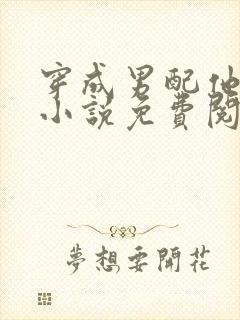 穿成男配他
小說免費閱
夢想要開花